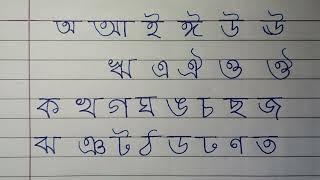 অ আ ই ঈ উ ঊ
ঋ এ ঐ ও ঔ
ক খ গ ঘ ঙ চ ছ জ
ঝ ঞ ট ঠ ড ঢ ণ ত